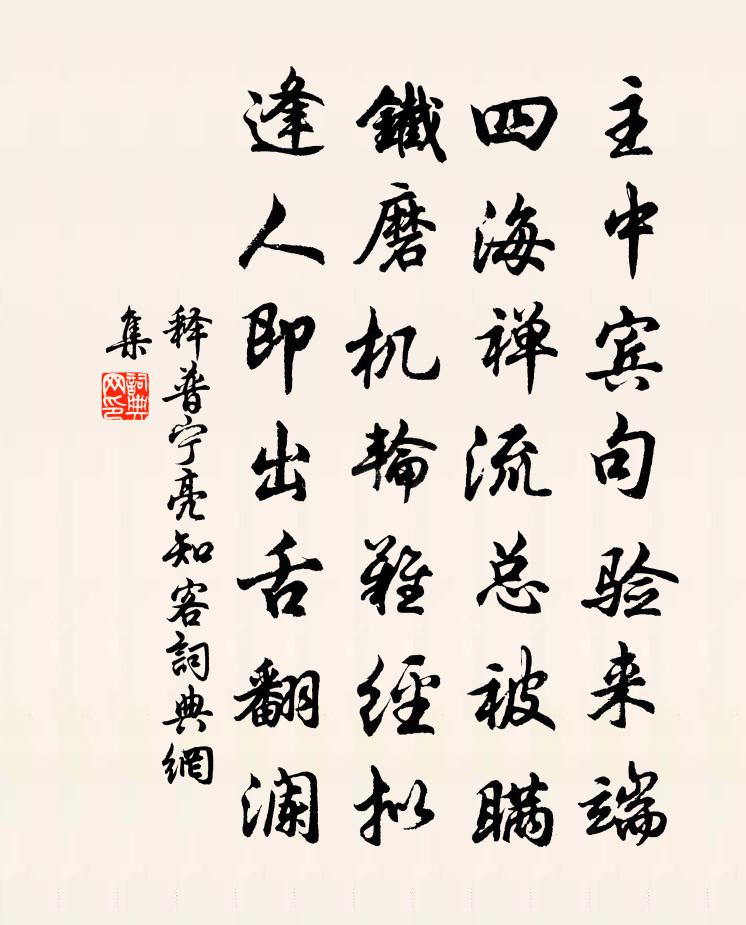 主中宾句验来端
四海禅流总被瞒
鐵磨机輪難經拟
逢人即出舌翻澜
释普宁亮知客詞典網
集
詞典网印